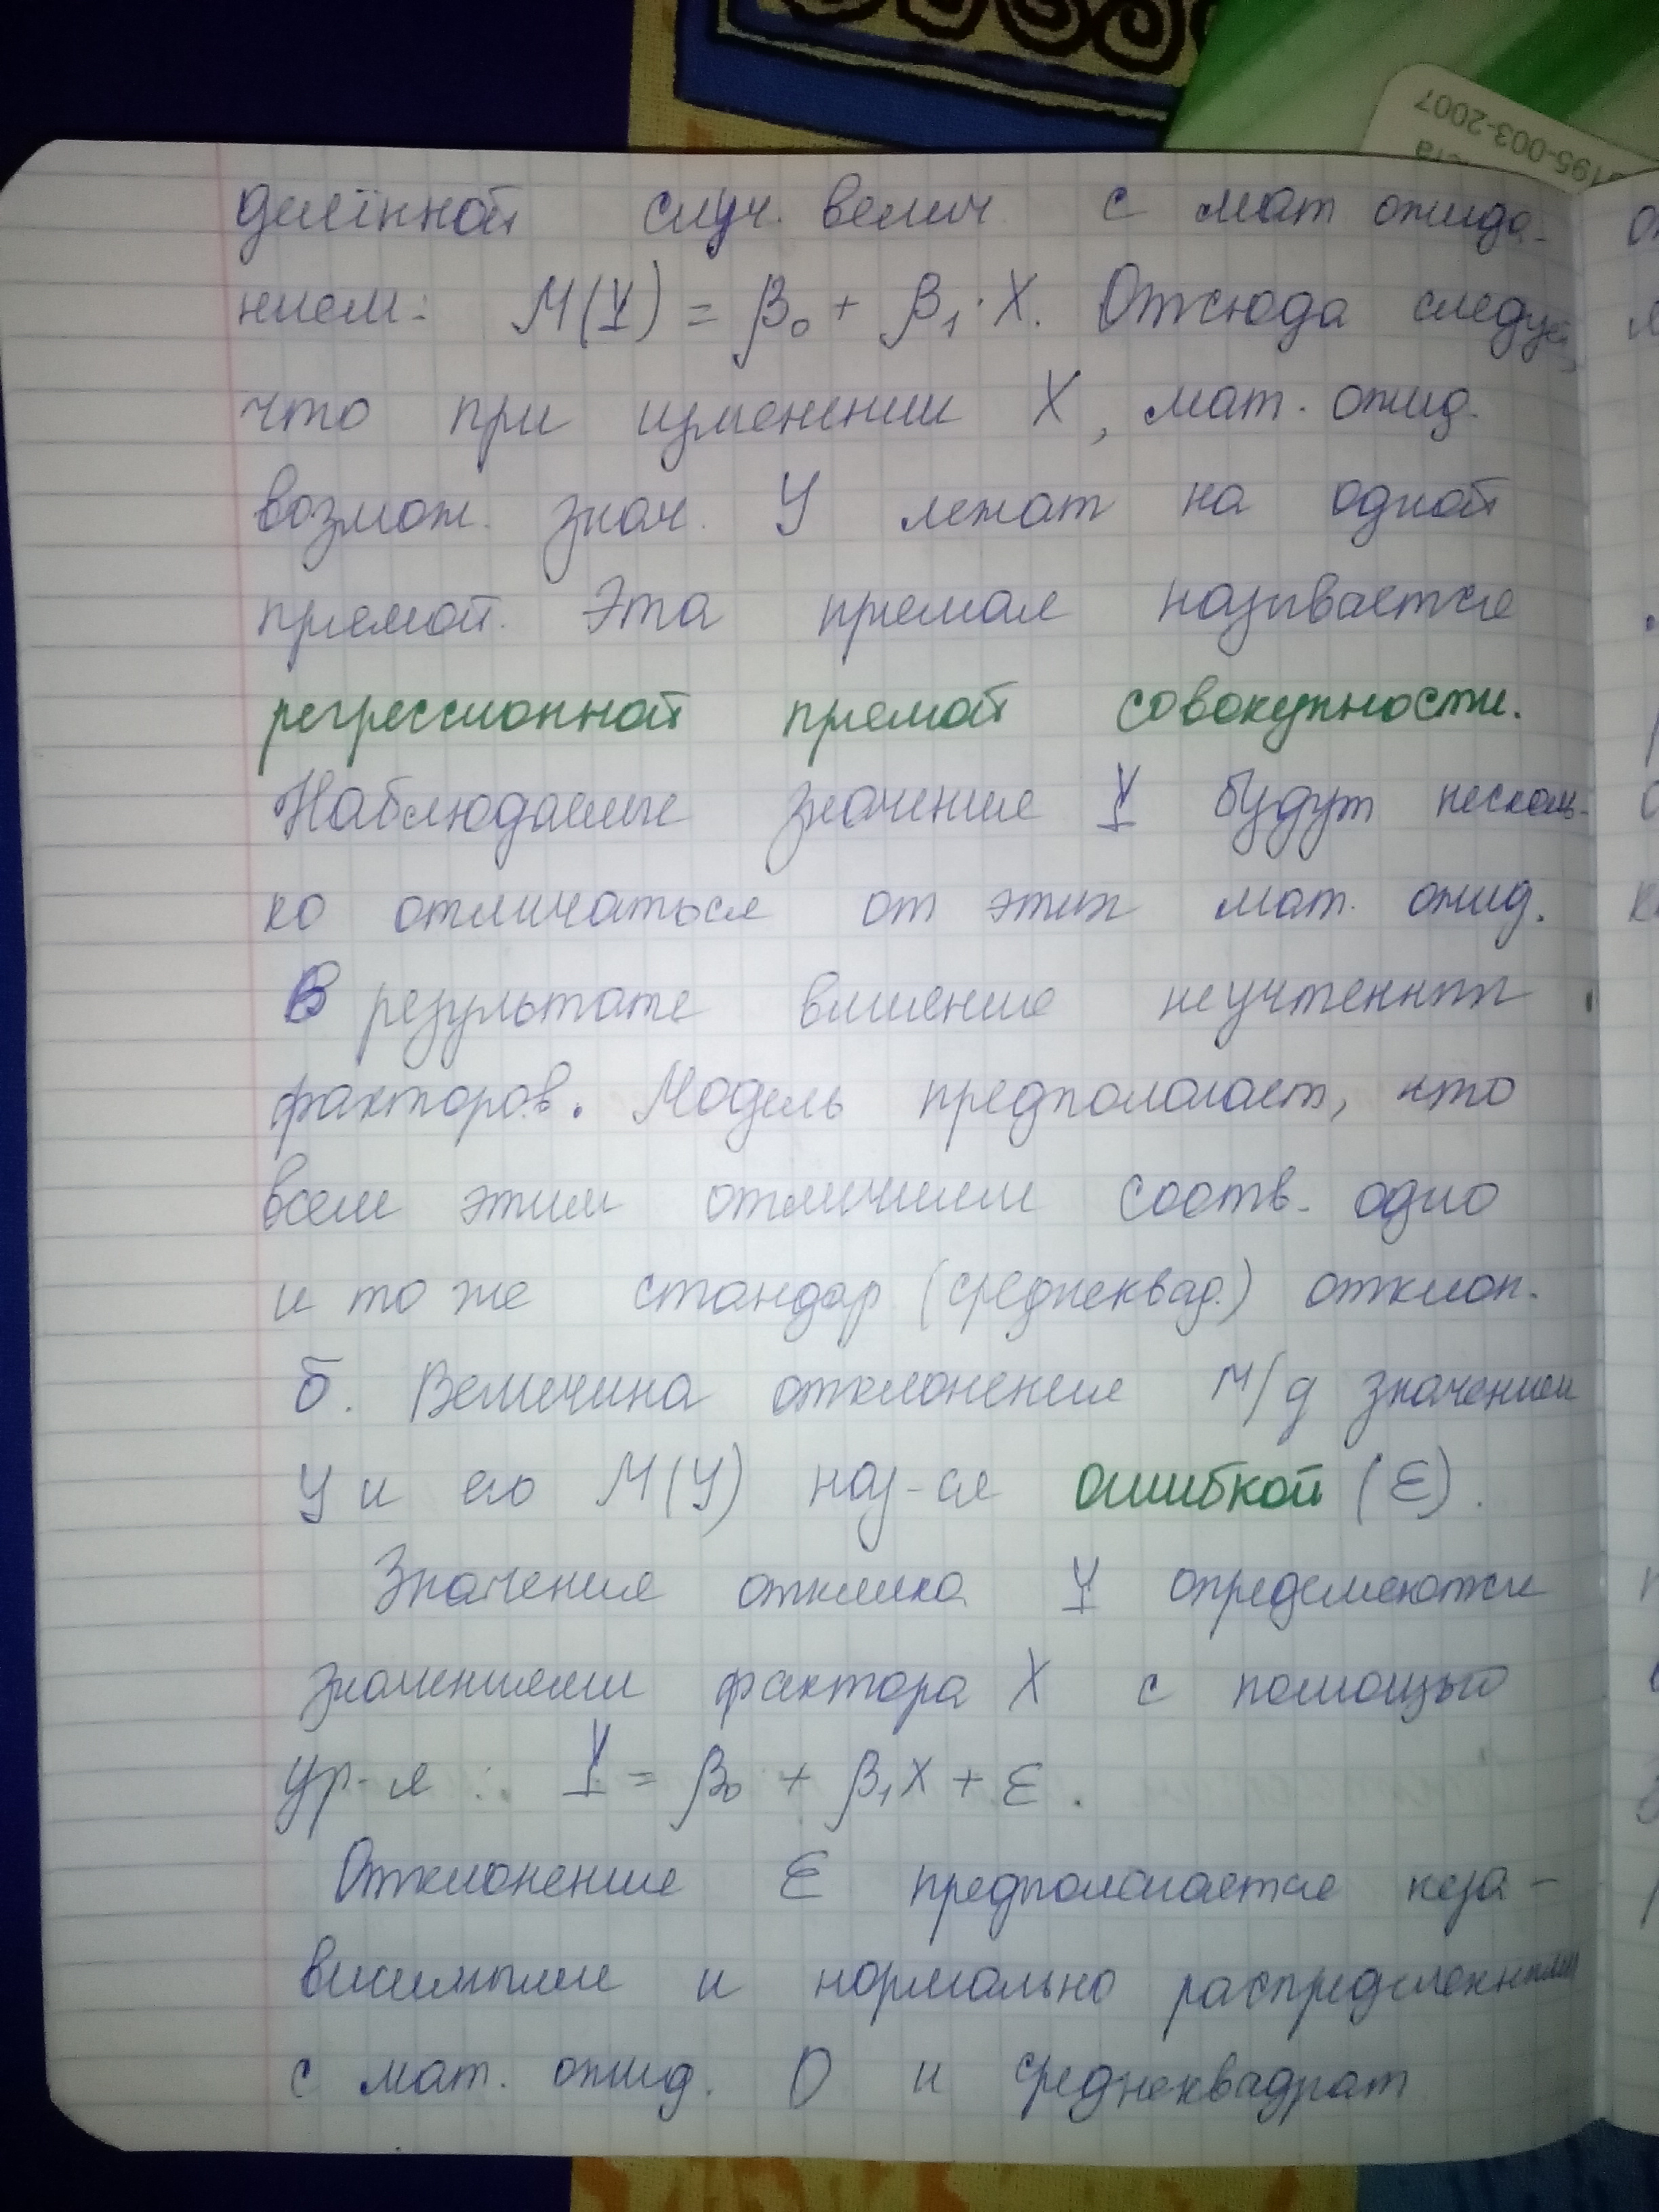 195-003-2007
делённой случ. велич с мат ожида-
нием: М(Y) = β₀ + β₁·X. Отсюда следует,
что при изменении X, мат. ожид.
возмож. знач. У лежат на одной
прямой. Эта прямая называется
регрессионной прямой совокупности.
Наблюдаемые значения Y будут несколь-
ко отличаться от этих мат. ожид.
В результате влияние неучтенных
факторов. Модель предполагает, что
всем этим отличиям соотв. одно
и то же стандар (среднеквад.) отклон.
б. Величина отклонения м/д значением
У и его М(У) наз-ся ошибкой (ε).
Значения отклика Y определяются
значениями фактора X с помощью
ур-я: Y = β₀ + β₁X + ε.
Отклонение ε предполагается неза-
висимыми и нормально распределенными
с мат. ожид. 0 и среднеквадрат